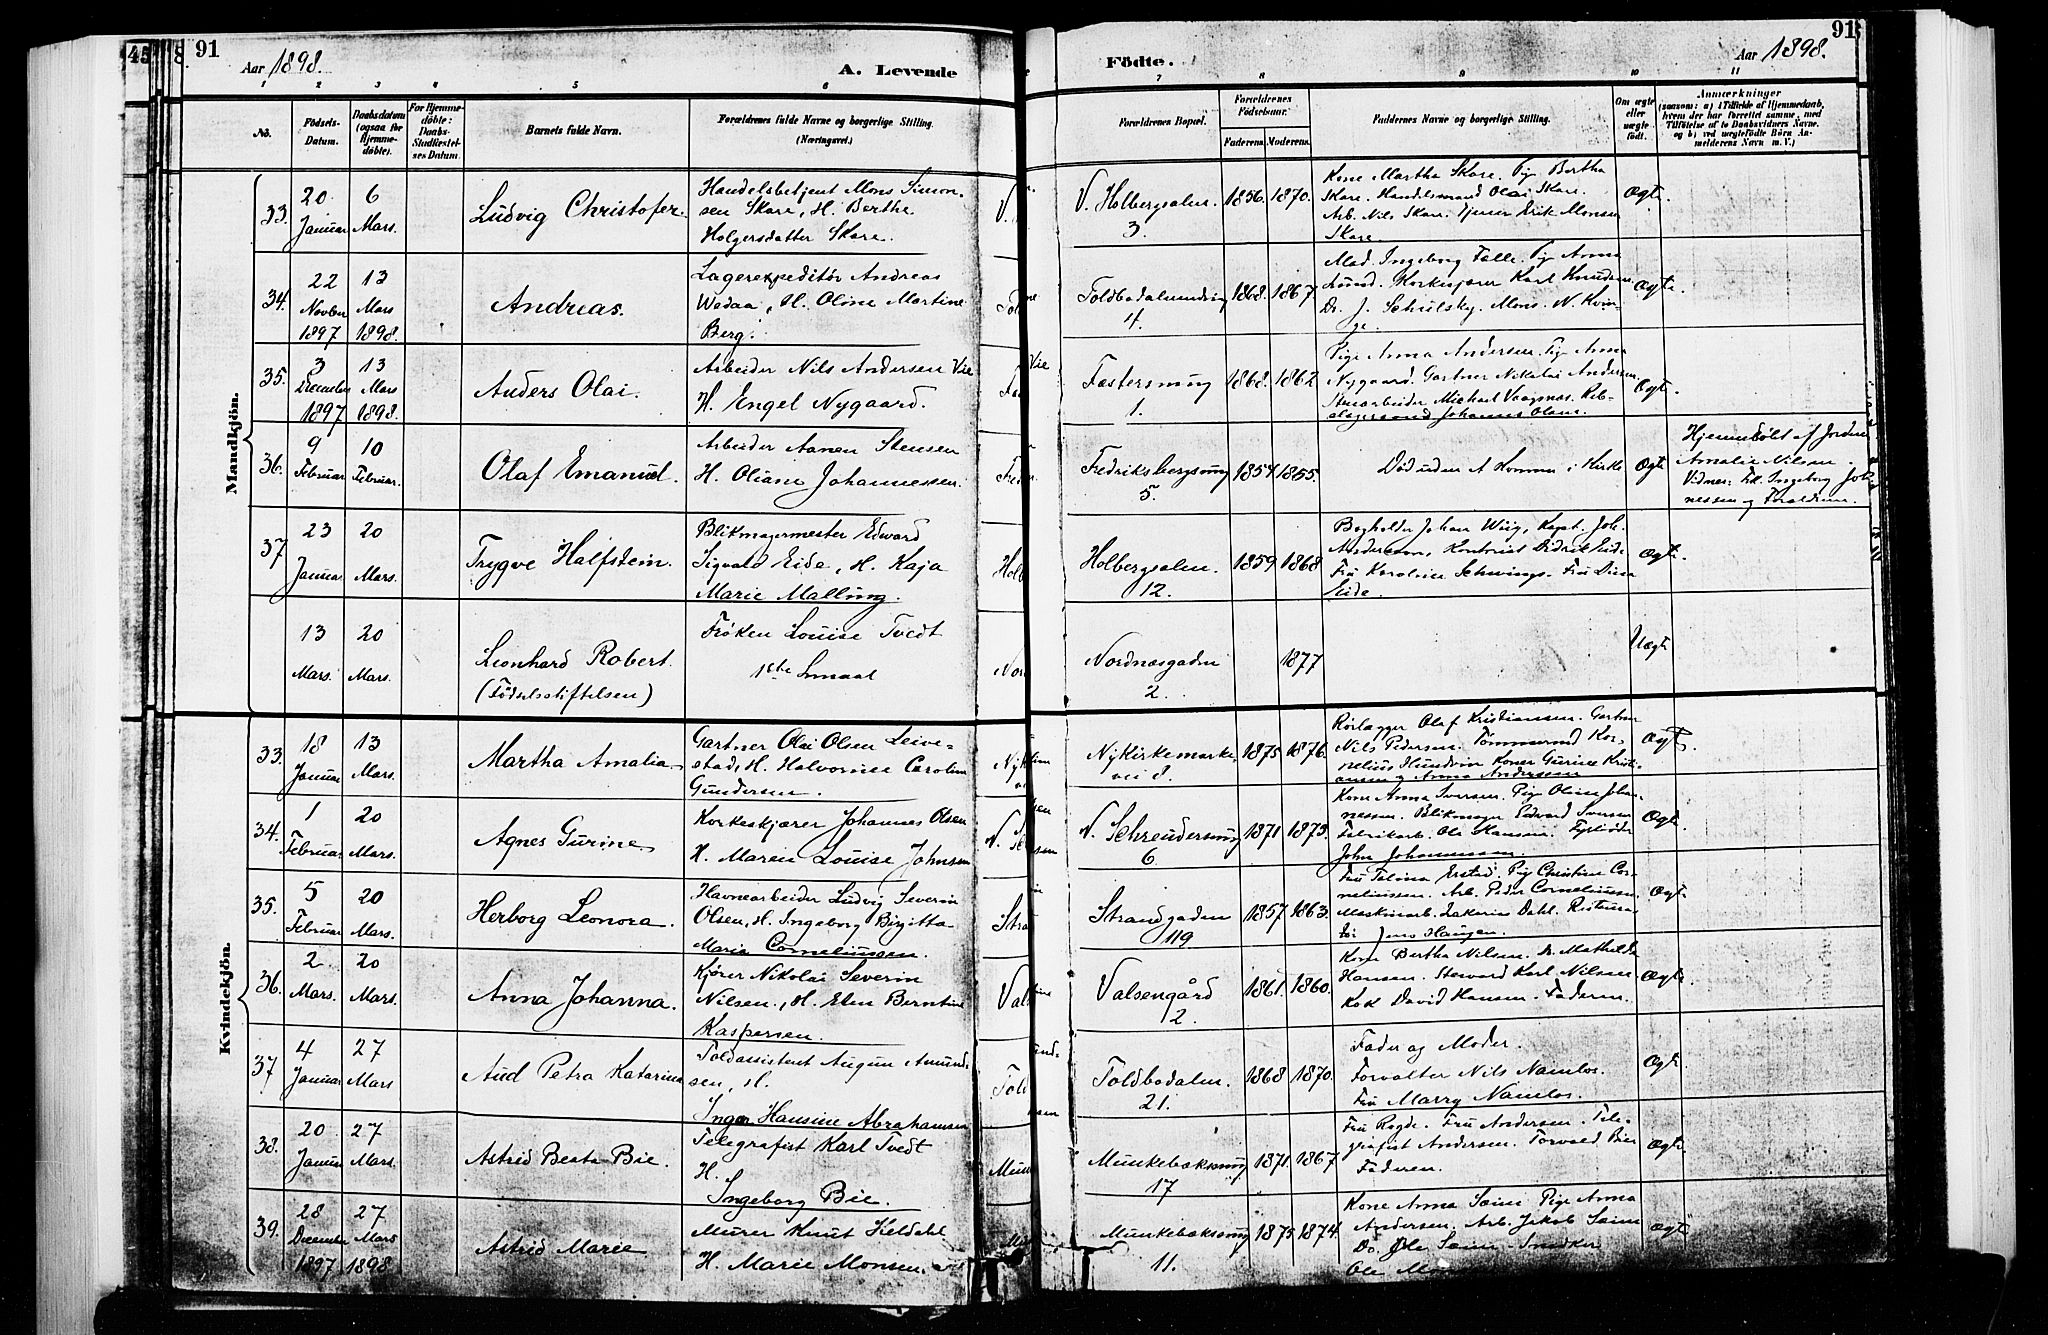 45
91
Aar 1898.
A. Levende
Födte.
Aar 1898.
91
1 2 3 4 5 6 7 8 9 10 11
No.
Födsels-
Datum.
Daabsdatum
(ogsaa for
Hjemme-
döbte).
For Hjemme-
döbte:
Daabs-
Stadfæstel-
ses Datum.
Barnets fulde Navn.
Forældrenes fulde Navne og borgerlige Stilling.
(Næringsvei.)
Forældrenes Bopæl.
Forældrenes
Födselsaar.
Faderens. Moderens.
Faddernes Navne og borgerlige Stilling.
Om ægte
eller
uægte
födt.
Anmærkninger
(saasom: a) i Tilfælde af Hjemmedaab,
hvem der har forrettet samme, med
Tilföielse af to Daabsvidners Navne.
og b) ved uægtefödte Börn An-
melderens Navn m. V.)
Mandkjön.
33. 20 Januar 6 Mars.
Ludvig Christofer.
Handelsbetjent Mons Simon-
sen Skare, H. Berthe
Holgersdatter Skare.
V. Holbergsalm.
3.
1856. 1870.
Kone Martha Skare. Pige Bertha
Skare. Handelsmand Olai Skare.
Arb. Nils Skare. Tjener Erik Monsen
Skare.
Ægte.
34. 22 Novber 1897 13 Mars 1898.
Andreas.
Lagerexpeditör Andreas
Wedaa, H. Oline Martine
Berg.
Toldbodalmindning
4.
1868. 1867.
Mad. Ingeborg Falle. Pige Anna
Korkskjærer Karl Knudsen
Dr. J. Schulsky. Mons. N. Kvin-
ge.
Ægte.
35. 3 December 1897 13 Mars 1898.
Anders Olai.
Arbeider Nils Andersen Vie
H. Engel Nygaard.
Fæstersmug
1.
1868. 1862.
Pige Anna Andersen. Pige Anna
Nygaard. Gartner Nikolai Andersen.
Stuearbeider Michael Vaagsnæs. Reb-
slagersvend Johannes Olsen.
Ægte.
36. 9 Februar 10 Februar.
Olaf Emanuel.
Arbeider Aanen Stensen
H. Oliane Johannessen.
Fredriksbergsmug
5.
1854 1855.
Död uden at komme i Kirke
Ægte
Hjemmedöbt af Jordm.
Amalie Nilsen.
Vidner: Frk. Ingeborg Johan-
nessen og Forældrene.
37 23 Januar. 20 Mars.
Trygve Halfstein.
Blikmagermester Edward
Sigvald Eide, H. Kaja
Marie Malling.
Holbergsalm.
12.
1859 1868
Bogholder Johan Wiig, Kapt. Joh.
Andersen, Kontorist Didrik Eide
Fru Karoline Schwings. Fru Dina
Eide.
Ægte.
13 Mars. 20 Mars.
Leonhard Robert.
(Födselsstiftelsen)
Fröken Louise Tvedt
1ste Lmaal
Nordnæsgaden
2.
1877
Uægte
Kvindekjön.
33. 18 Januar 13 Mars.
Martha Amalia
Gartner Olai Olsen Leive-
stad, H. Halvorine Caroline
Gundersen.
Nykirkemarke-
vei 8.
1875 1876.
Rörlægger Olaf Kristiansen. Gartner
Nils Pedersen. Tömmermd Kor-
nelius Hundvin Koner Gurine Kristi-
ansen og Anna Andersen
Ægte.
34. 1 Februar 20 Mars.
Agnes Gurine
Korkeskjærer Johannes Olsen
H. Maren Louise Johnsen
V. Schreudersmug
6
1871 1873.
Kone Anna Iversen. Pige Oline Johan-
nessen. Blikmager Edvard Iversen
Fabrikarb. Ole Hansen. Fyrböder
John Johannessen.
Ægte.
35. 5 Februar 20 Mars.
Herborg Leonora.
Havnearbeider Ludvig Severin
Olsen, H. Ingeborg Birgitta
Marie Corneliussen.
Strandgaden
119
1857 1863.
Fru Talina Ersted. Pige Christine Cor-
neliussen. Arb. Peder Corneliussen.
Maskinarb. Zakarias Dahl. Restaura-
tör Jens Haugen.
Ægte.
36. 2 Mars. 20 Mars.
Anna Johanna.
Kjörer Nikolai Severin
Nilsen, H. Elen Berntine
Kaspersen.
Valsengård
2.
1861. 1860.
Kone Bertha Nilsen. Do. Mathilde
Hansen. Steward Karl Nilsen
Kok David Hansen. Faderen.
Ægte.
37 4 Januar 27 Mars
Aud Petra Katarina
Toldassistent Augun Amund-
sen, H.
Inga Hansine Abrahamsen
Toldbodalm.
21.
1868 1870.
Fader og Moder.
Forvalter Nils Namlos.
Fru Marry Namlos.
Ægte.
38. 20 Januar 27 Mars.
Astrid Beata Bie.
Telegrafist Karl Tvedt
H.
Ingeborg Bie.
Munkebæksmug
17
1871. 1867
Fru Rogde. Fru Andersen. Tele-
grafist Andersen. Torvald Bie
Faderen.
Ægte.
39. 28 December 1897 27 Mars 1898
Astrid Marie
Murer Knut Kieldahl
H. Marie Monsen.
Munkebæksmug
11.
1875 1874.
Kone Anna Sæim Pige Anna
Andersen. Arb. Jakob Sæim
Do. Ole Sæim Snedker
Ole
Ægte